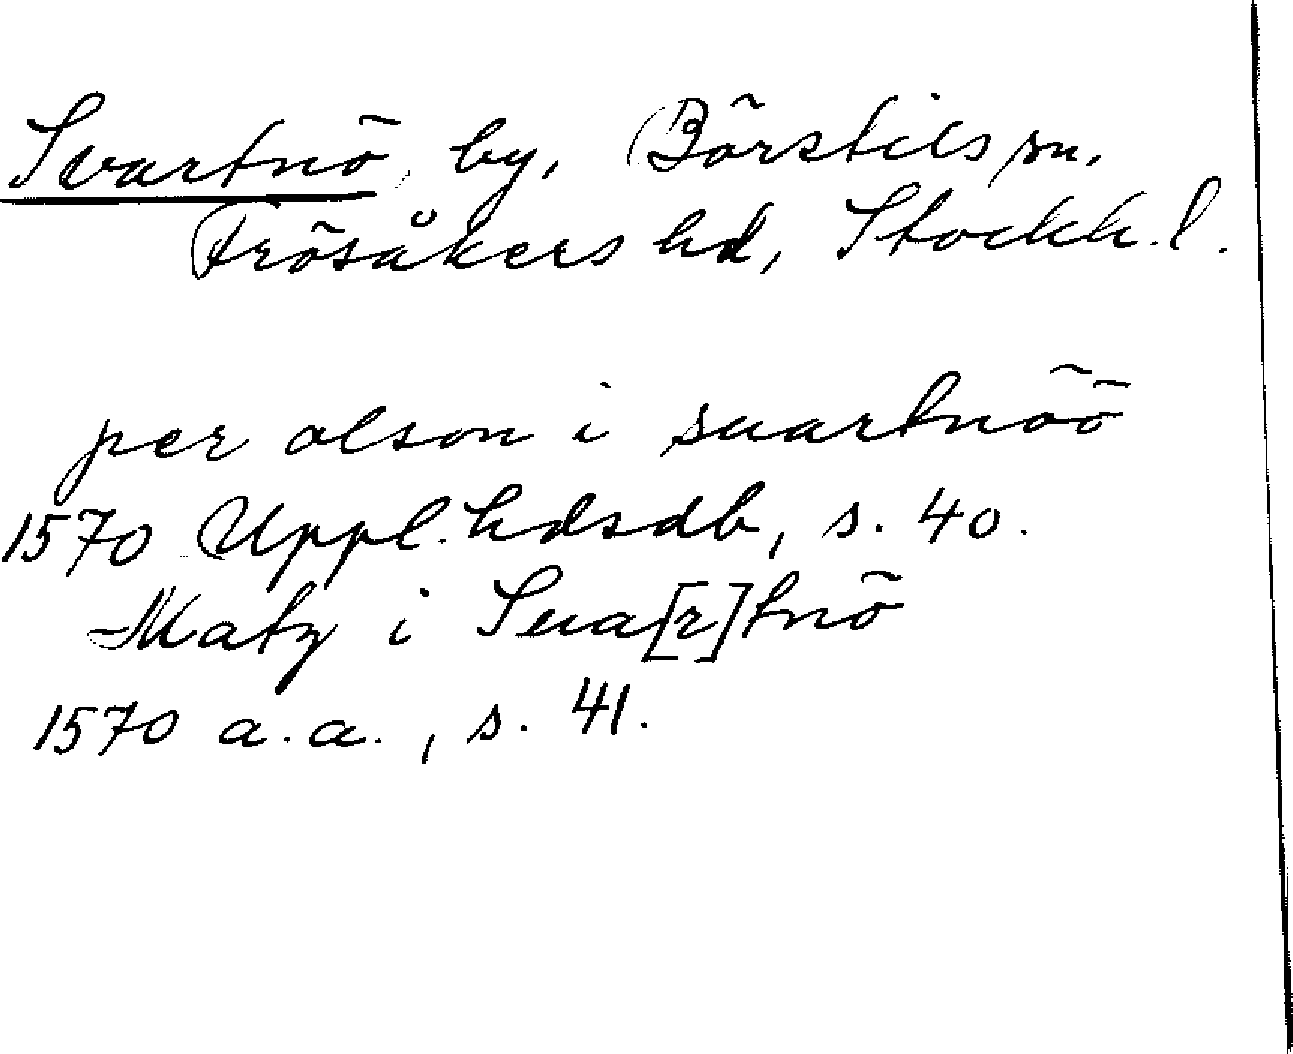 Svartnö, by, Börstils sn.
Frösåkers hd, Stockh. l.
per olson i suartnöö
1570 Uppl. hdsdb, s. 40.
Matz i Sua[r]tnö
1570 a.a., s. 41.